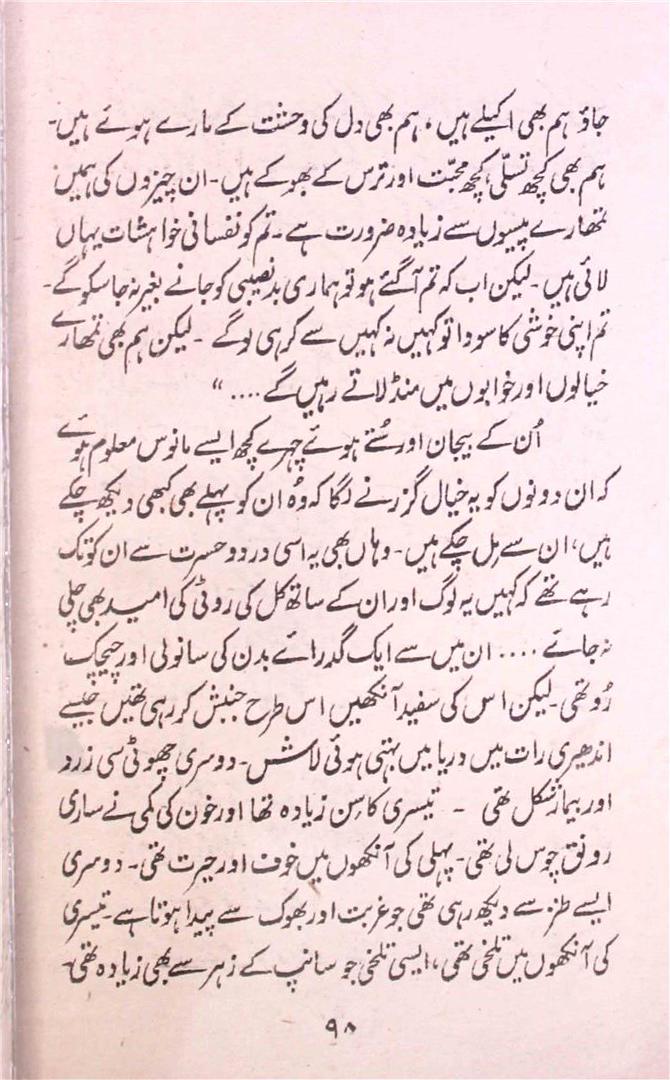 جاؤ ہم بھی اکیلے ہیں، ہم بھی دل کی وحشت کے مارے ہوئے ہیں۔
ہم بھی کچھ تسلّی، کچھ محبّت اور ترس کے بھوکے ہیں۔ ان چیزوں کی ہمیں
تمھارے پیسوں سے زیادہ ضرورت ہے۔ تم کو نفسانی خواہشات یہاں
لائی ہیں۔ لیکن اب کہ تم آ گئے ہو تو ہماری بدنصیبی کو جانے بغیر نہ جا سکو گے۔
تم اپنی خوشی کا سودا تو کہیں نہ کہیں سے کر ہی لو گے۔ لیکن ہم بھی تمھارے
خیالوں اور خوابوں میں منڈلاتے رہیں گے ...."
اُن کے بیجان اور سُتے ہوئے چہرے کچھ ایسے مانوس معلوم ہوئے
کہ ان دونوں کو یہ خیال گزرنے لگا کہ وُہ ان کو پہلے بھی کبھی دیکھ چکے
ہیں، ان سے مل چکے ہیں۔ وہاں بھی یہ اسی درد و حسرت سے ان کو تک
رہے تھے کہ کہیں یہ لوگ اور ان کے ساتھ کل کی روٹی کی امید بھی چلی
نہ جائے .... ان میں سے ایک گدرائے بدن کی سانولی اور چیچک
رُو تھی۔ لیکن اس کی سفید آنکھیں اس طرح جنبش کر رہی تھیں جیسے
اندھیری رات میں دریا میں بہتی ہوئی لاش۔ دوسری چھوٹی سی زرد
اور بیمار شکل تھی ۔ تیسری کا سِن زیادہ تھا اور خون کی کمی نے ساری
رونق چوس لی تھی۔ پہلی کی آنکھوں میں خوف اور حیرت تھی۔ دوسری
ایسے طنز سے دیکھ رہی تھی جو غربت اور بھوک سے پیدا ہوتا ہے۔ تیسری
کی آنکھوں میں تلخی تھی، ایسی تلخی جو سانپ کے زہر سے بھی زیادہ تھی۔
۹۸